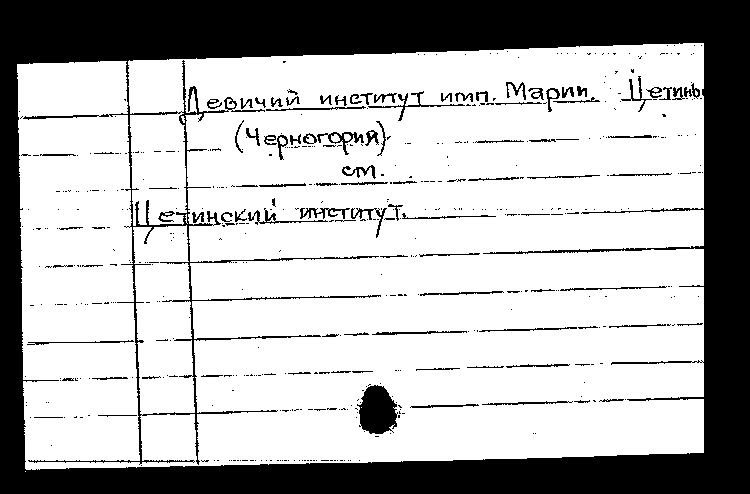 Девичий институт имп. Марии. Цетинь
(Черногория)
см.
Цетинский институт.